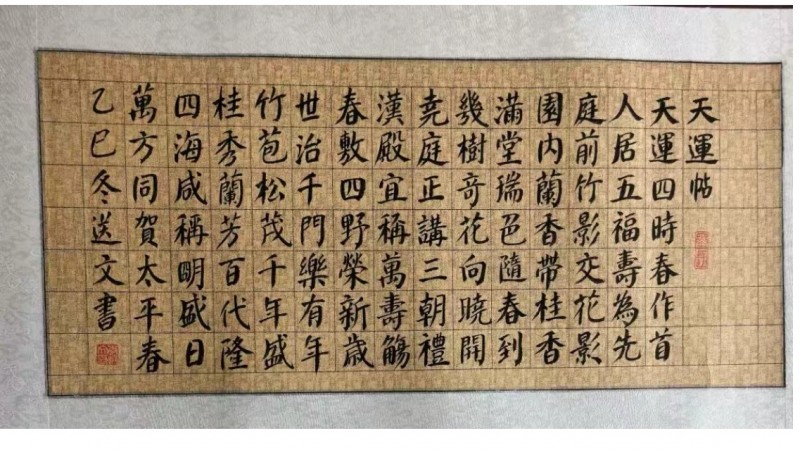 天運帖
天運四時春作首
人居五福壽為先
庭前竹影交花影
園内蘭香帶桂香
滿堂瑞色隨春到
幾樹奇花向曉開
堯庭正講三朝禮
漢殿宜稱萬壽觴
春敷四野榮新歲
世治千門樂有年
竹苞松茂千年盛
桂秀蘭芳百代隆
四海咸稱明盛日
萬方同賀太平春
乙巳冬送文書